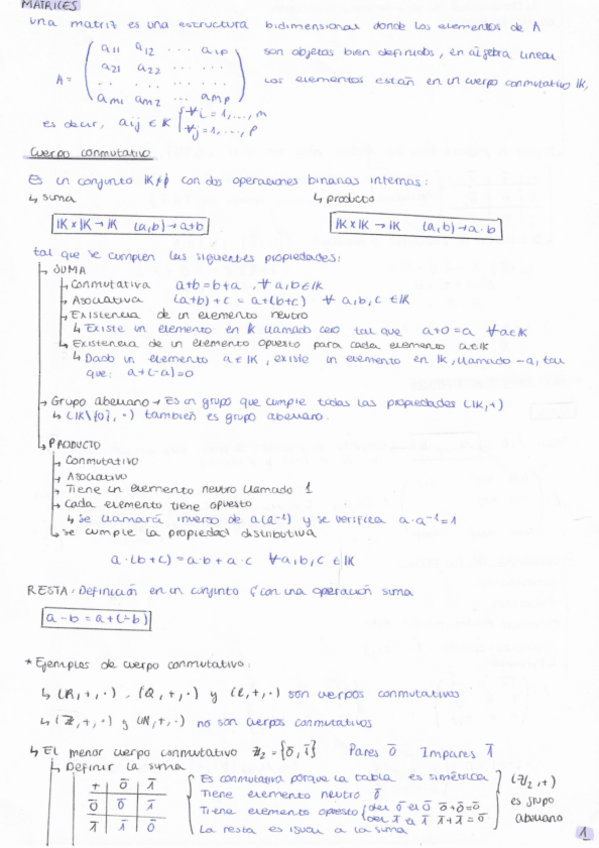 MATRICES
Una matriz es una estructura bidimensional donde los elementos de A
A = ( a11 a12 ... a1p
a21 a22 ... ...
... ... ... ...
am1 am2 ... amp )
son objetos bien definidos, en álgebra lineal
los elementos están en un cuerpo conmutativo IK,
es decir, aij ∈ IK { ∀i = 1, ..., m
∀j = 1, ..., p
Cuerpo conmutativo
Es un conjunto IK≠∅ con dos operaciones binarias internas:
↳ suma ↳ producto
IK x IK → IK (a,b) → a+b IK x IK → IK (a,b) → a·b
tal que se cumplen las siguientes propiedades:
↳ SUMA
↳ Conmutativa a+b=b+a, ∀ a,b ∈ IK
↳ Asociativa (a+b)+c = a+(b+c) ∀ a,b,c ∈ IK
↳ Existencia de un elemento neutro
↳ Existe un elemento en IK llamado cero tal que a+0=a ∀a∈IK
↳ Existencia de un elemento opuesto para cada elemento a∈IK
↳ Dado un elemento a∈IK, existe un elemento en IK, llamado -a, tal
que: a+(-a)=0
↳ Grupo abeliano → Es un grupo que cumple todas las propiedades (IK,+)
↳ (IK\{0}, ·) también es grupo abeliano.
↳ PRODUCTO
↳ Conmutativo
↳ Asociativo
↳ Tiene un elemento neutro llamado 1
↳ Cada elemento tiene opuesto
↳ Se llamará inverso de a (a⁻¹) y se verifica a·a⁻¹=1
↳ Se cumple la propiedad distributiva
a·(b+c) = a·b + a·c ∀ a,b,c ∈ IK
RESTA: Definición en un conjunto G con una operación suma
a-b = a+(-b)
* Ejemplos de cuerpo conmutativo:
↳ (R,+,·), (Q,+,·) y (C,+,·) son cuerpos conmutativos
↳ (Z,+,·) y (N,+,·) no son cuerpos conmutativos
↳ El menor cuerpo conmutativo Z₂ = {0̄, 1̄} Pares 0̄ Impares 1̄
↳ Definir la suma
+ 0̄ 1̄
0̄ 0̄ 1̄
1̄ 1̄ 0̄
Es conmutativa porque la tabla es simétrica
Tiene elemento neutro 0̄
Tiene elemento opuesto { del 0̄ el 0̄ 0̄+0̄=0̄
del 1̄ el 1̄ 1̄+1̄=0̄
La resta es igual a la suma
(Z₂,+)
es grupo
abeliano
1